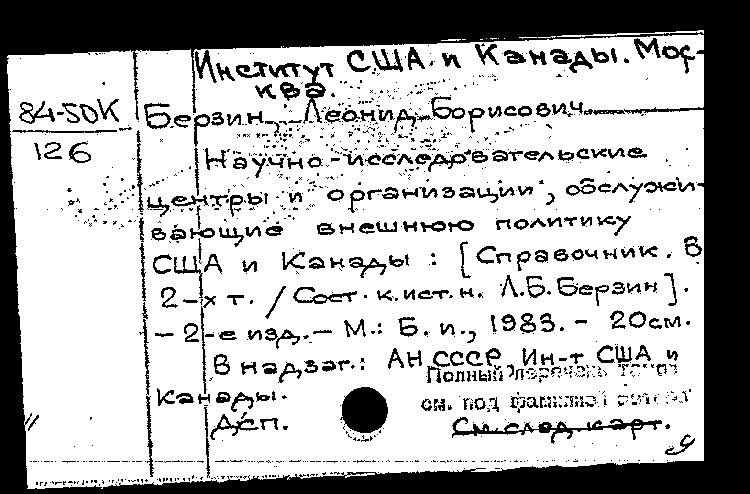 Институт США и Канады. Мос-
ква.
84-50К
126
Берзин, Леонид Борисович
Научно-исследовательские
центры и организации, обслужи-
вающие внешнюю политику
США и Канады : [Справочник. В
2-х т. / Сост. к.ист.н. Л.Б.Берзин].
– 2-е изд. – М.: Б. и., 1983. – 20см.
В надзаг.: АН СССР, Ин-т США и
Канады.
Полный перечень
см. под фамилией
ДСП.
См. след. карт.